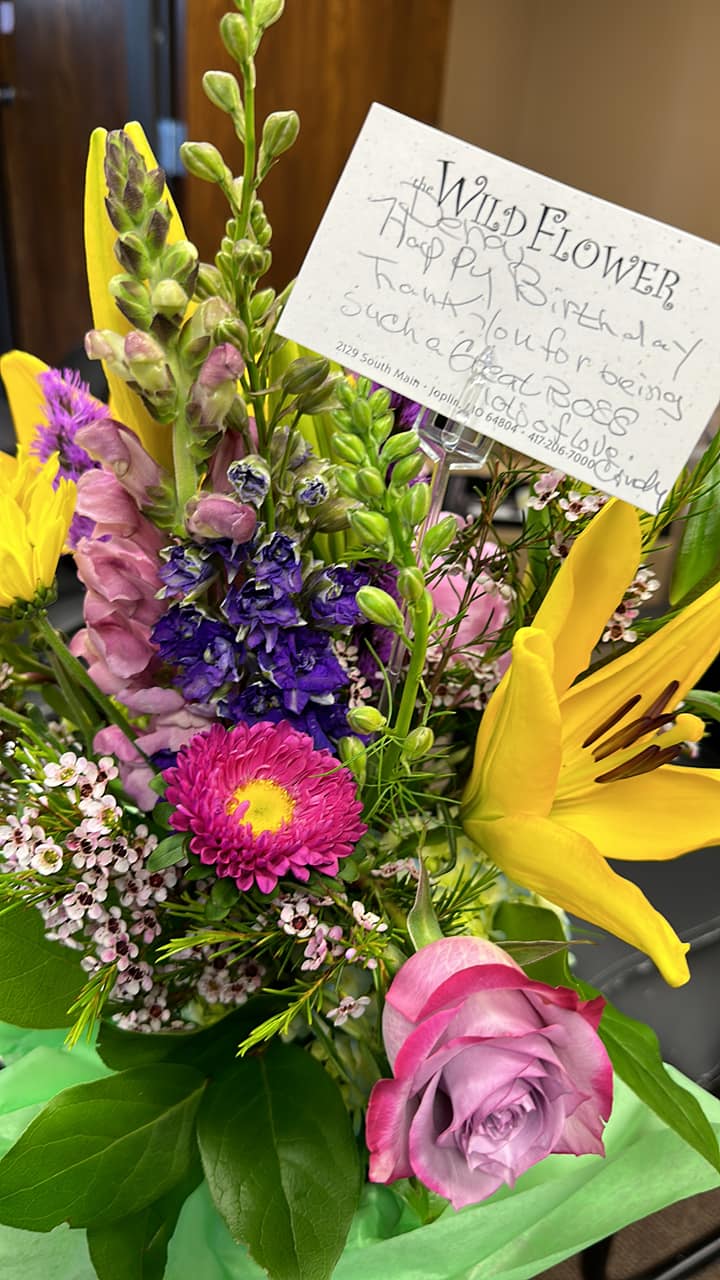 the WILD FLOWER
Happy Birthday
Thank you for being
such a Great BOSS
lots of love.
Cindy
2129 South Main · Joplin, MO 64804 · 417-206-7000